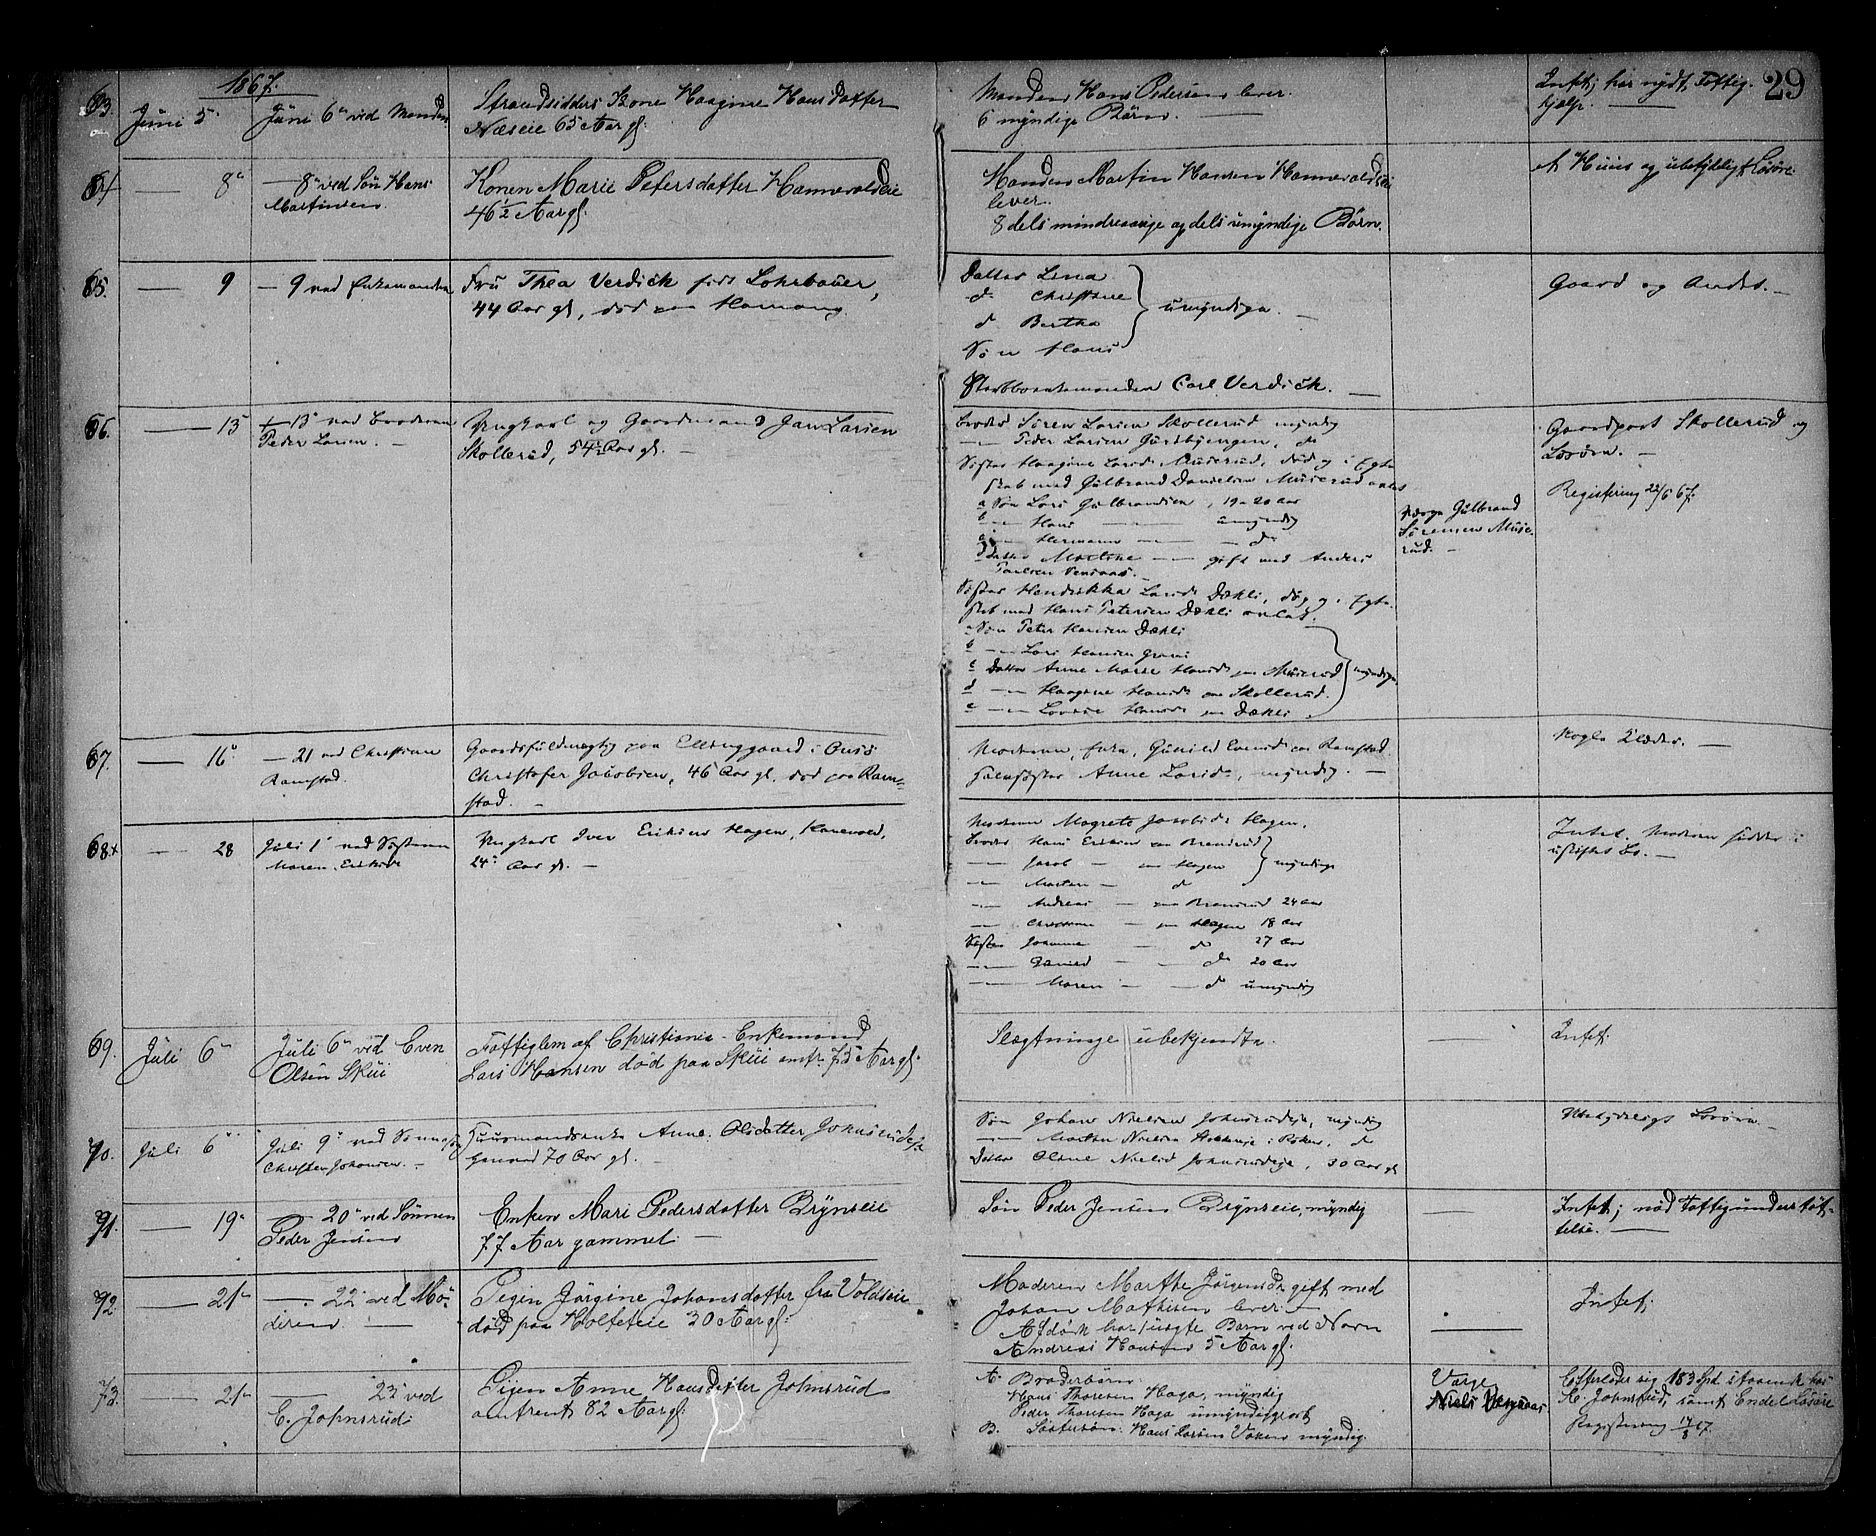 29
1867.
63.
Juni 5
Juni 6 ved Manden
Strandsidders Kone Haagine Hansdatter
Næseie 65 Aar gl.
Manden Hans Pedersen lever.
6 myndige Børn.
Intet; har nydt Fattig-
hjælp.
64
8
8 ved Søn Hans
Martinsen
Konen Marie Petersdatter Hammevoldseie
46½ Aar gl.
Manden Martin Hansen
lever.
8 dels mindreaarige og dels umyndige Børn.
Huus og ubetydeligt Løsøre
65.
9
9 ved Enkemanden
Fru Thea Verdick født Lohrbauer,
44 Aar gl, død paa Hamang
Datter Lina
d. Christine
d. Bertha
Søn Hans
umyndige
Stervboenkemanden Carl Verdick.
Gaard og Andet.
66.
13
13 ved Broderen
Peder Larsen.
Ungkarl og Gaardmand Jan Larsen
Skollerud, 54 Aar gl.
Broder Søren Larsen Skollerud myndig
Peder Larsen do
Søster Haagine Larsd. Muserud, død og i Egte-
skab med Gulbrand Danielsen Muserud
a Søn Lars Gulbrandsen, 19 a 20 Aar
b Hans umyndig
c Hermann do
d Datter gift med Anders
Søster Hendrikka Larsd. Dæhli, død og i Egte-
skab med Hans Petersen Dæhli
a Søn Peter Hansen Dæhli
b Lars Hansen
c Datter Anne Marie Hansd. Muserud
d Haagine Hansd. paa Skollerud.
e Lovise Hansd. paa Dæhli
myndige.
Værge Gulbrand
Sørensen Muse-
rud.
Gaardpart Skollerud og
Løsøre.
Registering 22/6 67.
67.
16
21 ved Christian
Ramstad.
Gaardsfuldmægtig paa Ellinggaard i Onsø
Christofer Jacobsen, 46 Aar gl. død paa Ram-
stad.
Moderen, Enke, Gunild Evensd. paa Ramstad
Halvsøster Anne Larsd., myndig.
Nogle Klæder.
68
28
Juli 1 ved Søsteren
Maren Eriksen
Ungkarl Iver Eriksen Hagen,
24 Aar gl.
Moderen Magrete Jacobsd. Hagen.
Broder Hans Eriksen
Jacob Hagen
Morten d
myndige
Andreas 24 Aar
Christian Hagen 18 Aar
Søster Johanne do 27 Aar
Gunild do 20 Aar
Maren d umyndig
Intet. Moderen sidder i
uskiftet Bo.
69.
Juli 6
Juli 6 ved Even
Olsen Skui
Fattiglem af Christiania Enkemand
Lars Hansen død paa Skui omtr. 75 Aar gl.
Slægtninge ubekjendte.
Intet.
70.
Juli 6
Juli 9 ved
Christen Johansen.
Huusmandsenke Anne Olsdatter Johnsrudeie
70 Aar gl.
Søn Johan Nielsen Johnsrudeie, myndig
Martin Nielsen i Røken, d
Datter Oline Nielsd Johnsrudeie, 30 Aar gl
Ubetydeligt Løsøre.
71.
19
20 ved Sønnen
Peder Jensen
Enken Mari Pedersdatter Brynseie
77 Aar gammel.
Søn Peder Jensen Brynseie, myndig
Intet; nød Fattigunderstøt-
telse.
72.
21
22 ved Mo-
deren
Pigen Jørgine Johansdatter fra Voldseie
død paa Holteteie 30 Aar gl.
Moderen Marthe Jørgensdr gift med
Johan Mathisen lever.
Afdøde har 1 uægte Barn ved Navn
Andreas Hansen 5 Aar gl.
Intet.
73.
21
23 ved
E. Johnsrud.
Pigen Anne Hansdatter Johnsrud
omtrent 82 Aar gl.
A. Broderbørn:
Hans Thoresen Haga, myndig
Peder Thoresen Haga umyndiggjort
B. Søstersøn: Hans Larsen Vøien myndig
Værge
Niels
Efterlader sig 183 Spd. i hos
E. Johnsrud, samt Endel Løsøre
Registering 14/8 67.